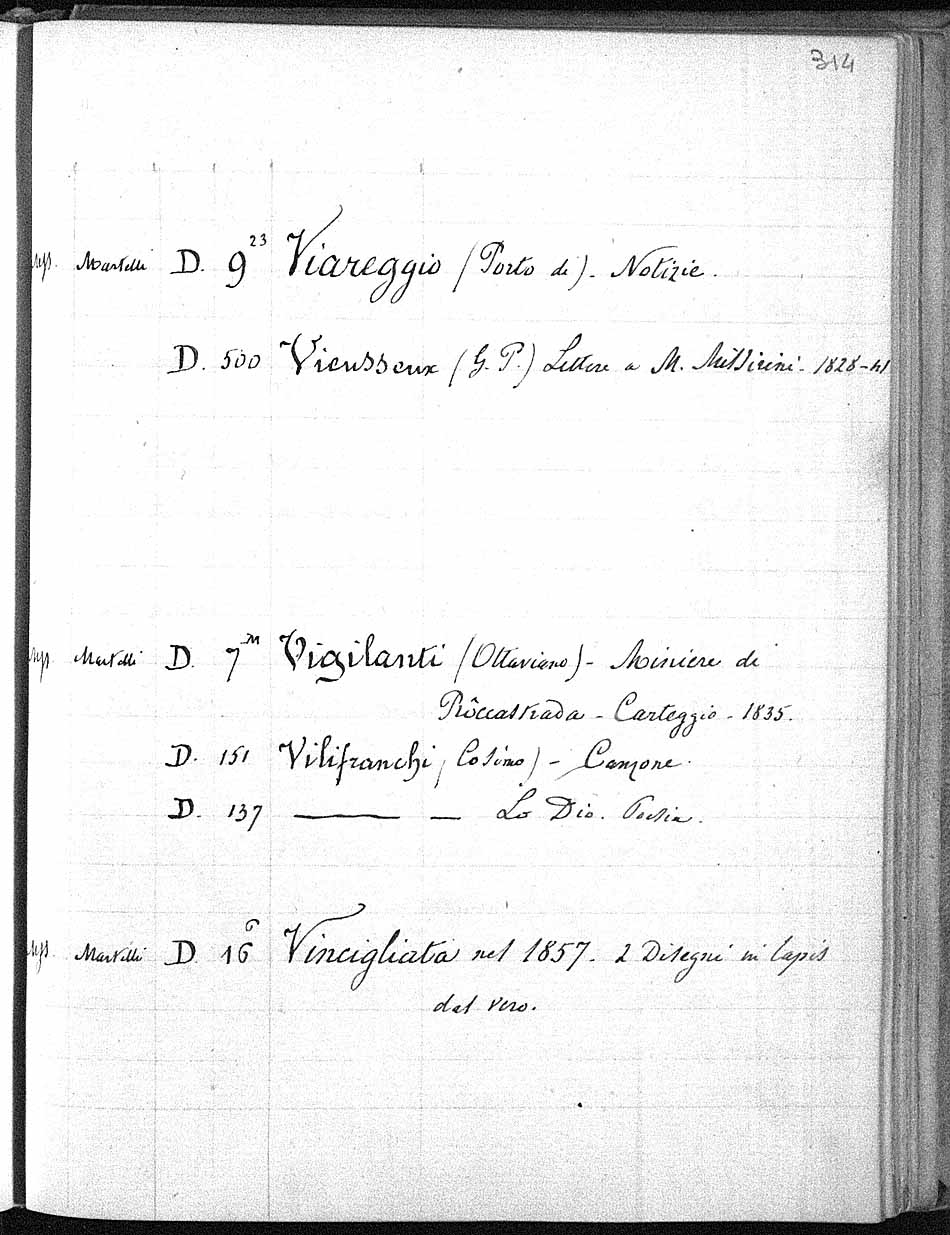 314
Martelli D. 9 23 Viareggio (Porto di) - Notizie.
D. 500 Vieusseux (G. P.) Lettere a M. Missirini - 1828-41
Martelli D. 7 M Vigilanti (Ottaviano) - Miniere di
Roccastrada - Carteggio - 1835.
D. 151 Vilifranchi, Cosimo) - Canzone.
D. 137 ——— — Lo Dio. Poesia.
Martelli D. 16 6 Vincigliata nel 1857. 2 Disegni in lapis
dal vero.